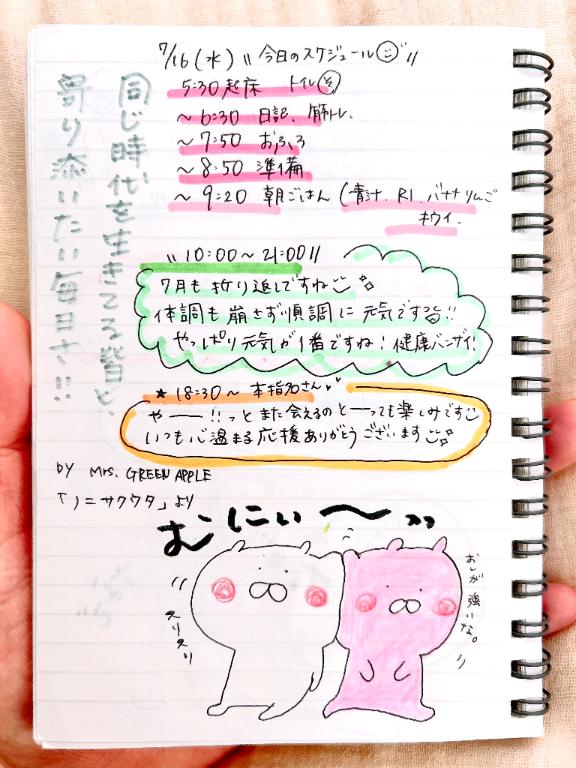 7/16(水) 〃今日のスケジュール〃
5:30 起床 トイレ
～6:30 日記、筋トレ、
～7:50 おふろ
～8:50 準備
～9:20 朝ごはん (青汁、R1、バナナりんご
キウイ、
〃10:00～21:00〃
7月も折り返しですね
体調も崩さず順調に元気です!!
やっぱり元気が1番ですね!健康バンザイ!
★18:30～ 本指名さん
やーー!!っとまた会えるのとーっても楽しみです
いつも心温まる応援ありがとうございます
同じ時代を生きてる皆と、
寄り添いたい毎日さ!!
by Mrs. GREEN APPLE
「ノニサクウタ」より
むにぃ～〃
スリスリ
おしが強いな。